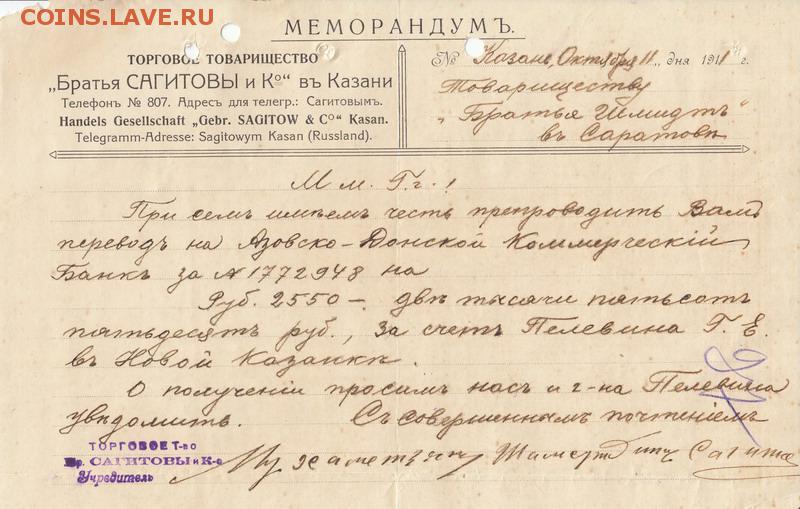 COINS.LAVE.RU
МЕМОРАНДУМЪ.
ТОРГОВОЕ ТОВАРИЩЕСТВО
„Братья САГИТОВЫ и Ко" въ Казани
Телефонъ № 807. Адресъ для телегр.: Сагитовымъ.
Handels Gesellschaft „Gebr. SAGITOW & Co" Kasan.
Telegramm-Adresse: Sagitowym Kasan (Russland).
№ Казань, Октября 11 „ дня 1911 г.
Товариществу
„Братья Шмидтъ"
въ Саратовѣ
М м. Г. г. !
При семъ имѣемъ честь препроводить Вамъ
переводъ на Азовско-Донской Коммерческій
Банкъ за № 1772948 на
Руб. 2550 -. двѣ тысячи пятьсотъ
пятьдесятъ руб., за счетъ Пелевина Г. Е.
въ Новой Казанкѣ.
О полученіи просимъ насъ и г-на Пелевина
увѣдомить. Съ совершеннымъ почтеніемъ
ТОРГОВОЕ Т-во
Бр. САГИТОВЫ и К-о
Учредитель
Мухаметзянъ Сагитовъ